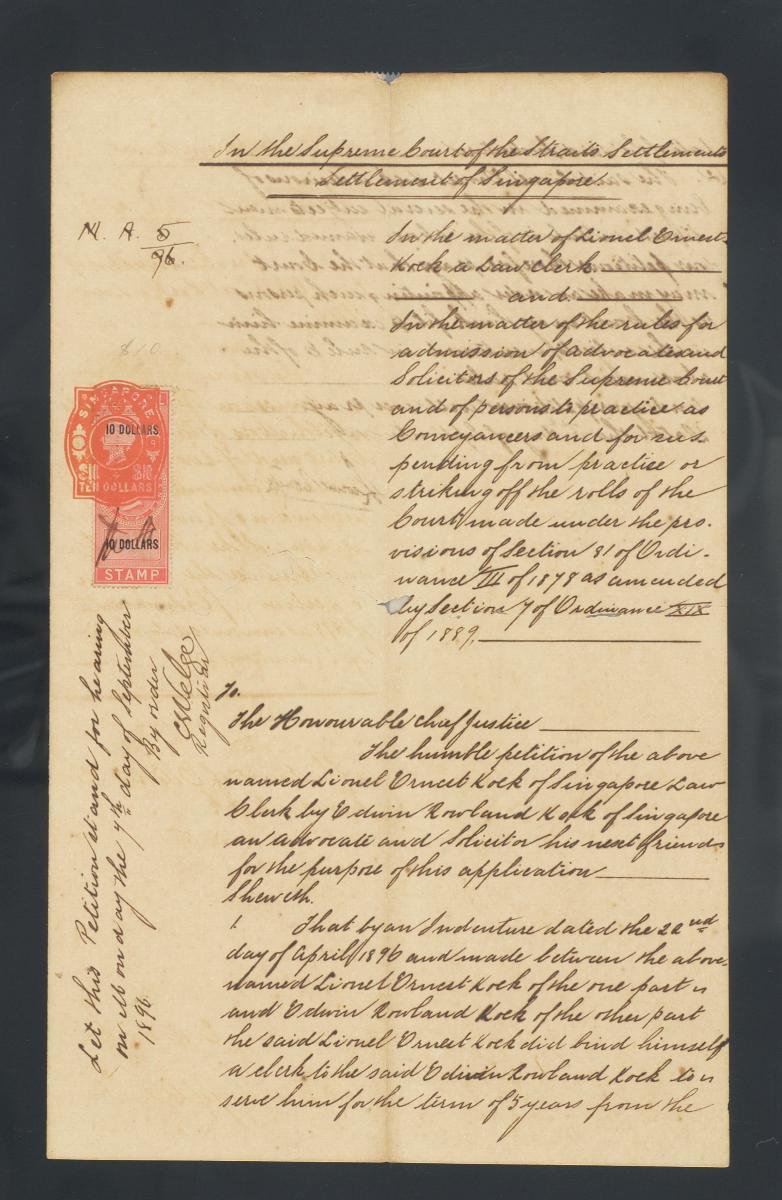 In the Supreme Court of the Straits Settlements
Settlement of Singapore.
M. A. 5
96.
In the matter of Lionel Ernest
Kock a Law Clerk
and
In the matter of the rules for
admission of advocates and
Solicitors of the Supreme Court
and of persons to practice as
Conveyancers and for sus
pending from practice or
striking off the rolls of the
Court made under the pro-
visions of Section 81 of Ordi-
nance III of 1878 as amended
by Section 7 of Ordinance XIX
of 1889.
$10
SINGAPORE
10 DOLLARS
$10 $10
TEN DOLLARS
10 DOLLARS
STAMP
Let this Petition stand for hearing
on Monday the 7th day of September
1896.
By order
Registrar
To.
The Honourable Chief Justice
The humble petition of the above
named Lionel Ernest Kock of Singapore Law
Clerk by Edwin Rowland Kock of Singapore
an advocate and Solicitor his next friends
for the purpose of this application
Sheweth.
1. That by an Indenture dated the 22nd
day of April 1896 and made between the above
named Lionel Ernest Kock of the one part
and Edwin Rowland Kock of the other part
the said Lionel Ernest Kock did bind himself
a clerk to the said Edwin Rowland Kock to
serve him for the term of 5 years from the